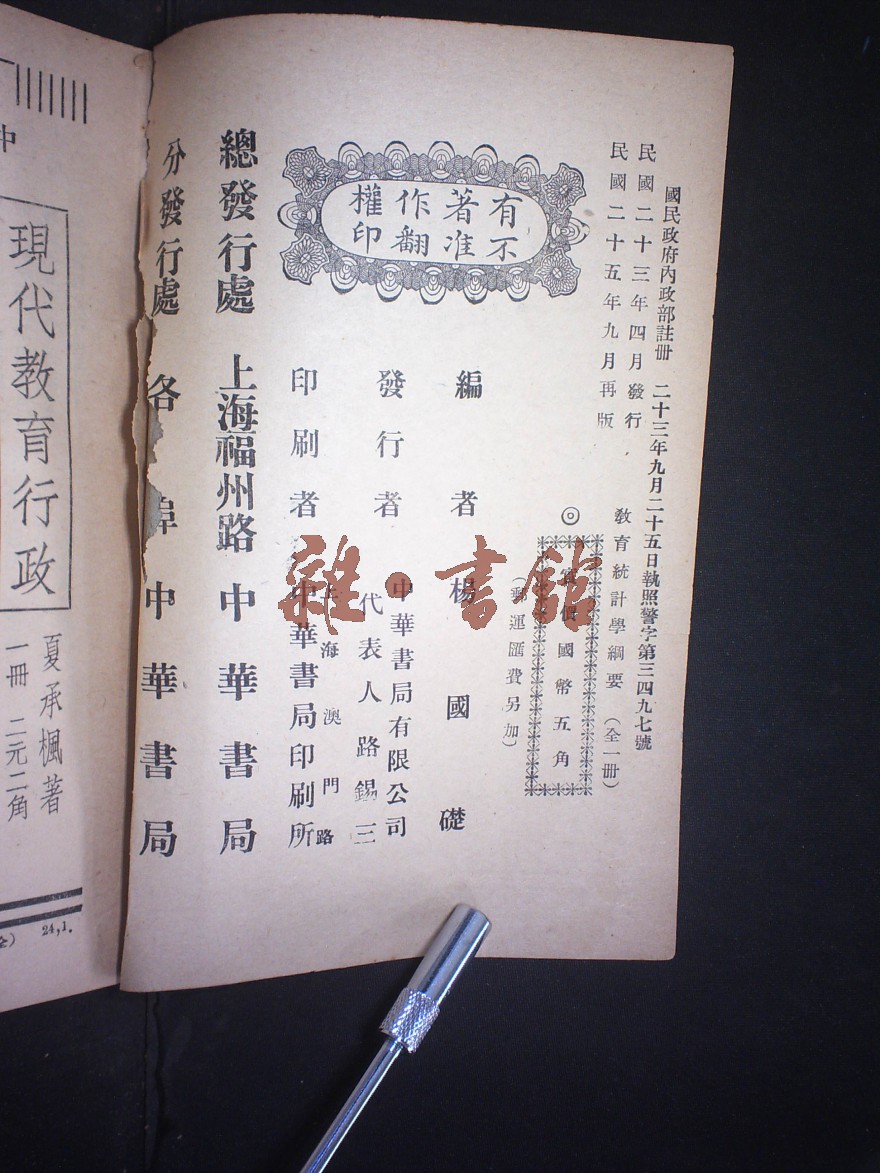 國民政府內政部註冊 二十三年九月二十五日執照警字第三四九七號
民國二十三年四月發行
民國二十五年九月再版
教育統計學綱要 (全一冊)
◎ 實價國幣五角
(郵運匯費另加)
有著作權
不准翻印
編者 楊國礎
發行者 中華書局有限公司
代表人 路錫三
印刷者 上海澳門路
中華書局印刷所
總發行處 上海福州路 中華書局
分發行處 各埠 中華書局
雜·書館
中
現代教育行政
夏承楓著
一冊 二元二角
24,1.